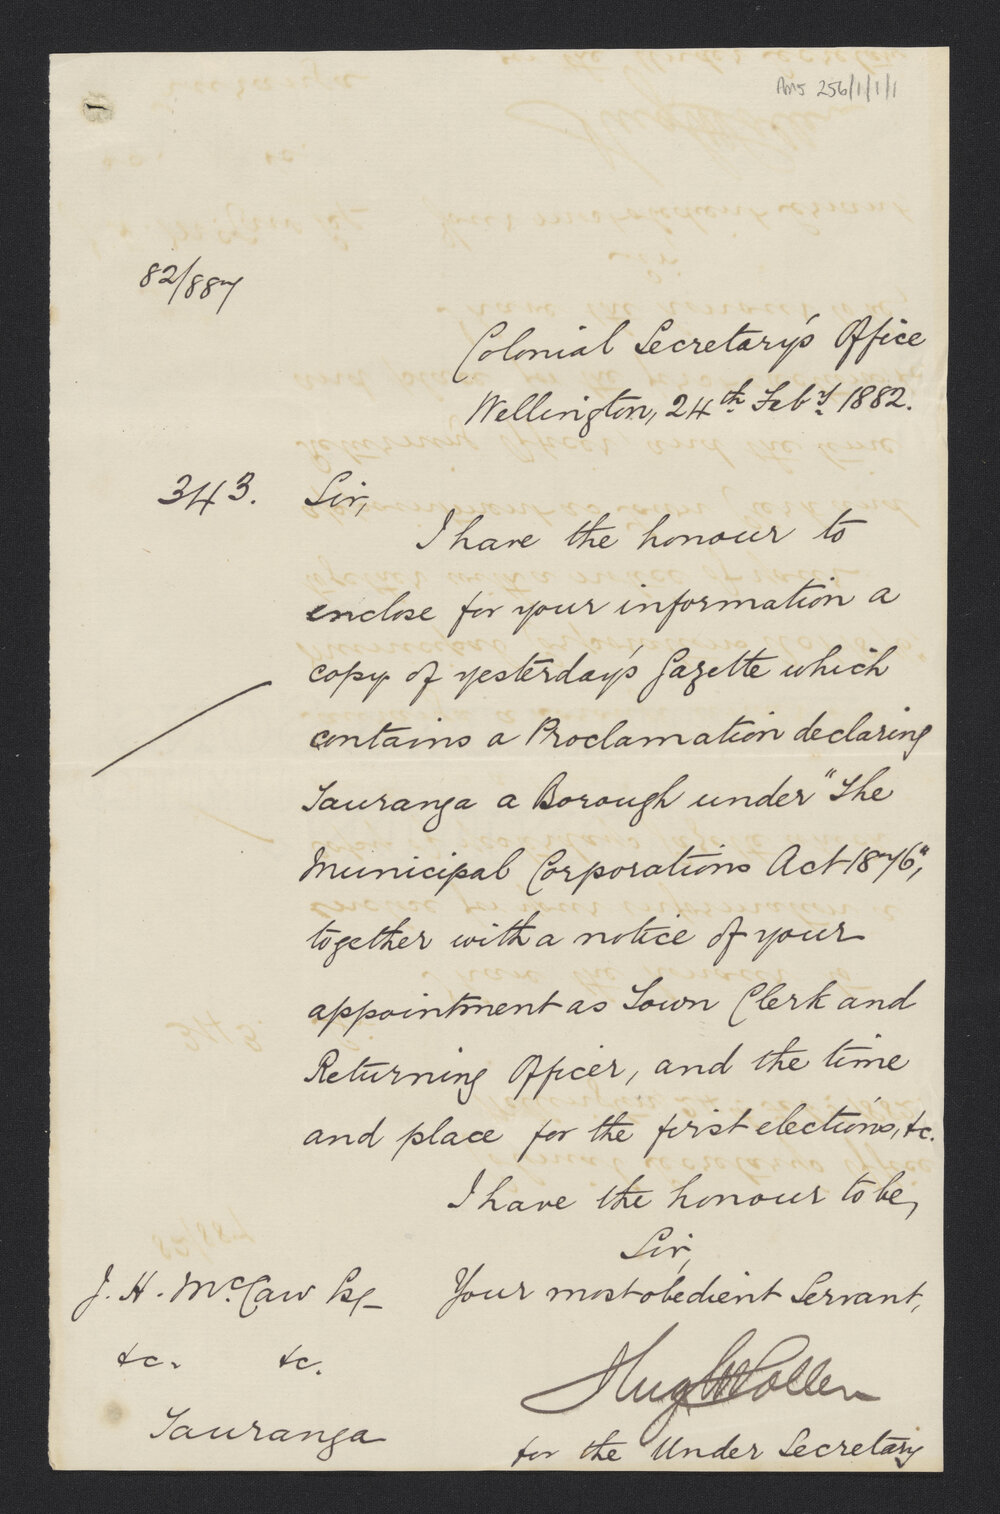 Ams 256/1/1/1
82/887
Colonial Secretary's Office
Wellington, 24th Feby. 1882.
343.
Sir,
I have the honour to
enclose for your information a
copy of yesterday's Gazette which
contains a Proclamation declaring
Tauranga a Borough under "The
Municipal Corporations Act 1876",
together with a notice of your
appointment as Town Clerk and
Returning Officer, and the time
and place for the first elections, &c.
I have the honour to be,
Sir,
Your most obedient Servant,
Hugh Pollen
for the Under Secretary
J. H. McCaw Esq
&c. &c.
Tauranga